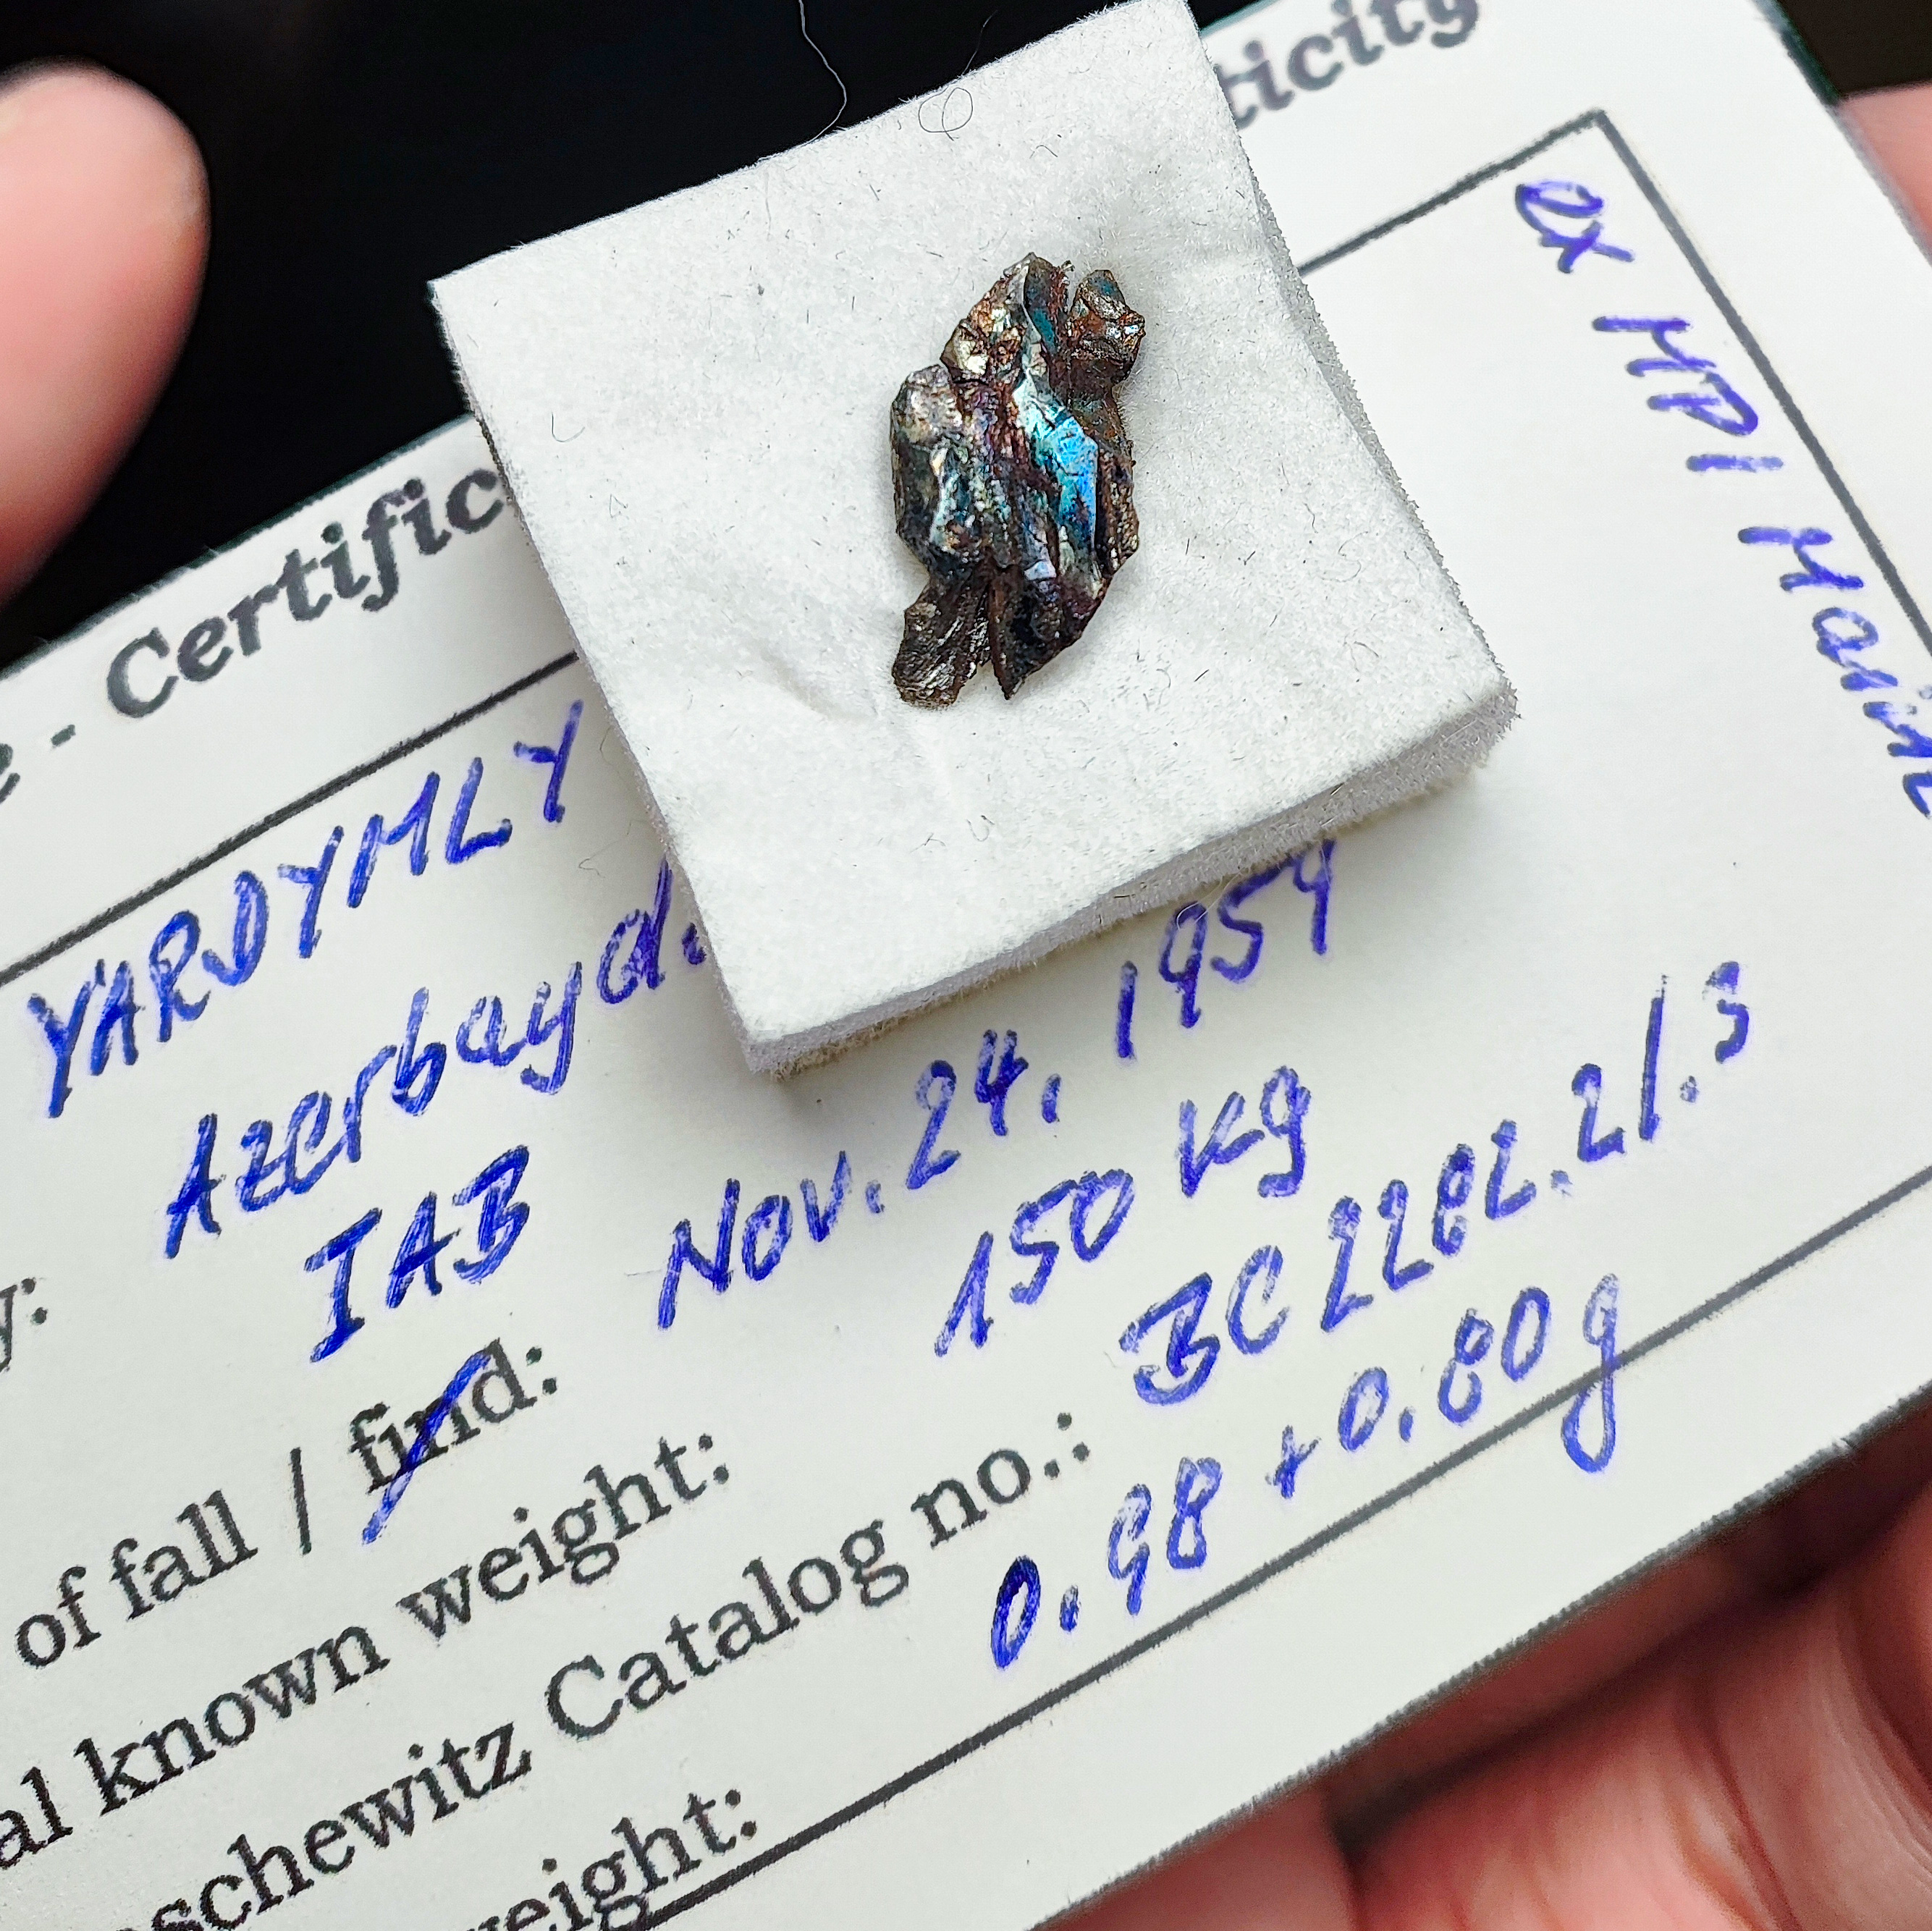 e - Certific ticity
YARDYMLY
Azerbayd.
y: IAB
of fall / find: Nov. 24, 1954
al known weight: 150 kg
schewitz Catalog no.: BC
eight: 0.98 + 0.80g
ex MPI Mainz